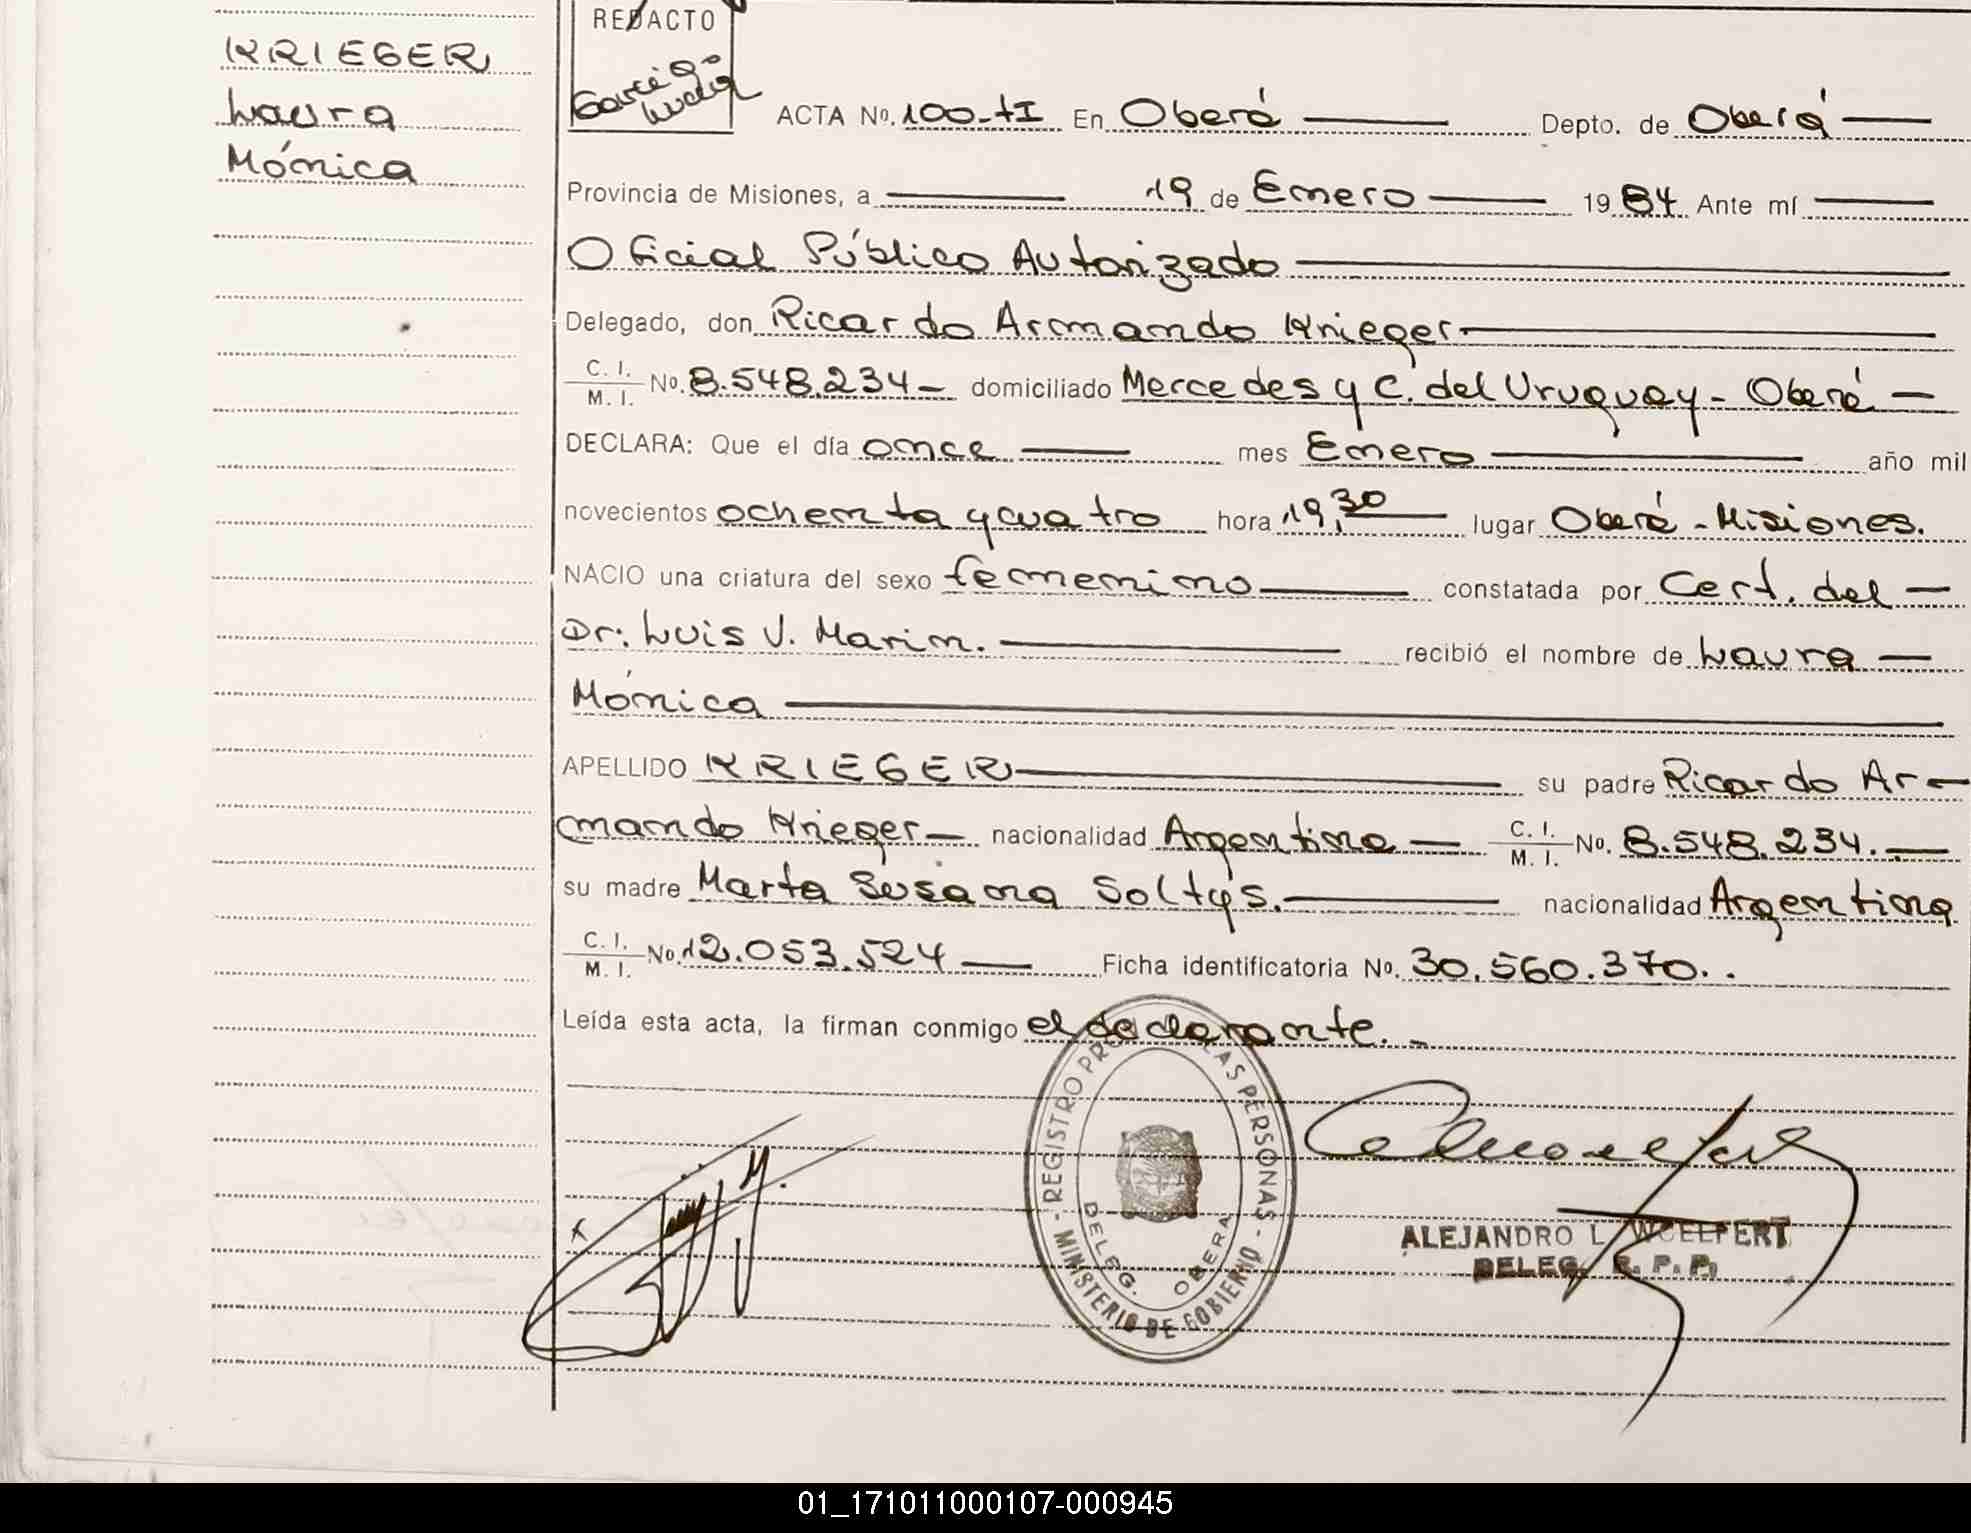 KRIEGER
Laura
Mónica
REDACTO
García
ACTA No. 100-tI En Oberá Depto. de Oberá
Provincia de Misiones, a 19 de Enero 1984 Ante mí
Oficial Público Autorizado
Delegado, don Ricardo Armando Krieger
C. I. / M. I. No. 8.548.234 - domiciliado Mercedes y C. del Uruguay - Oberá
DECLARA: Que el día once mes Enero año mil
novecientos ochenta y cuatro hora 19,30 lugar Oberá - Misiones.
NACIO una criatura del sexo femenino constatada por Cert. del
Dr: Luis V. Marin. recibió el nombre de Laura
Mónica
APELLIDO KRIEGER su padre Ricardo Ar-
mando Krieger nacionalidad Argentina C. I. / M. I. No. 8.548.234.
su madre Marta Susana Soltys. nacionalidad Argentina
C. I. / M. I. No. 12.053.524 Ficha identificatoria No. 30.560.370..
Leída esta acta, la firman conmigo el declarante.
- REGISTRO PROV. DE LAS PERSONAS - MINISTERIO DE GOBIERNO
DELEG. OBERA
ALEJANDRO L. WOELFERT
DELEG. R. P. P.
01_171011000107-000945